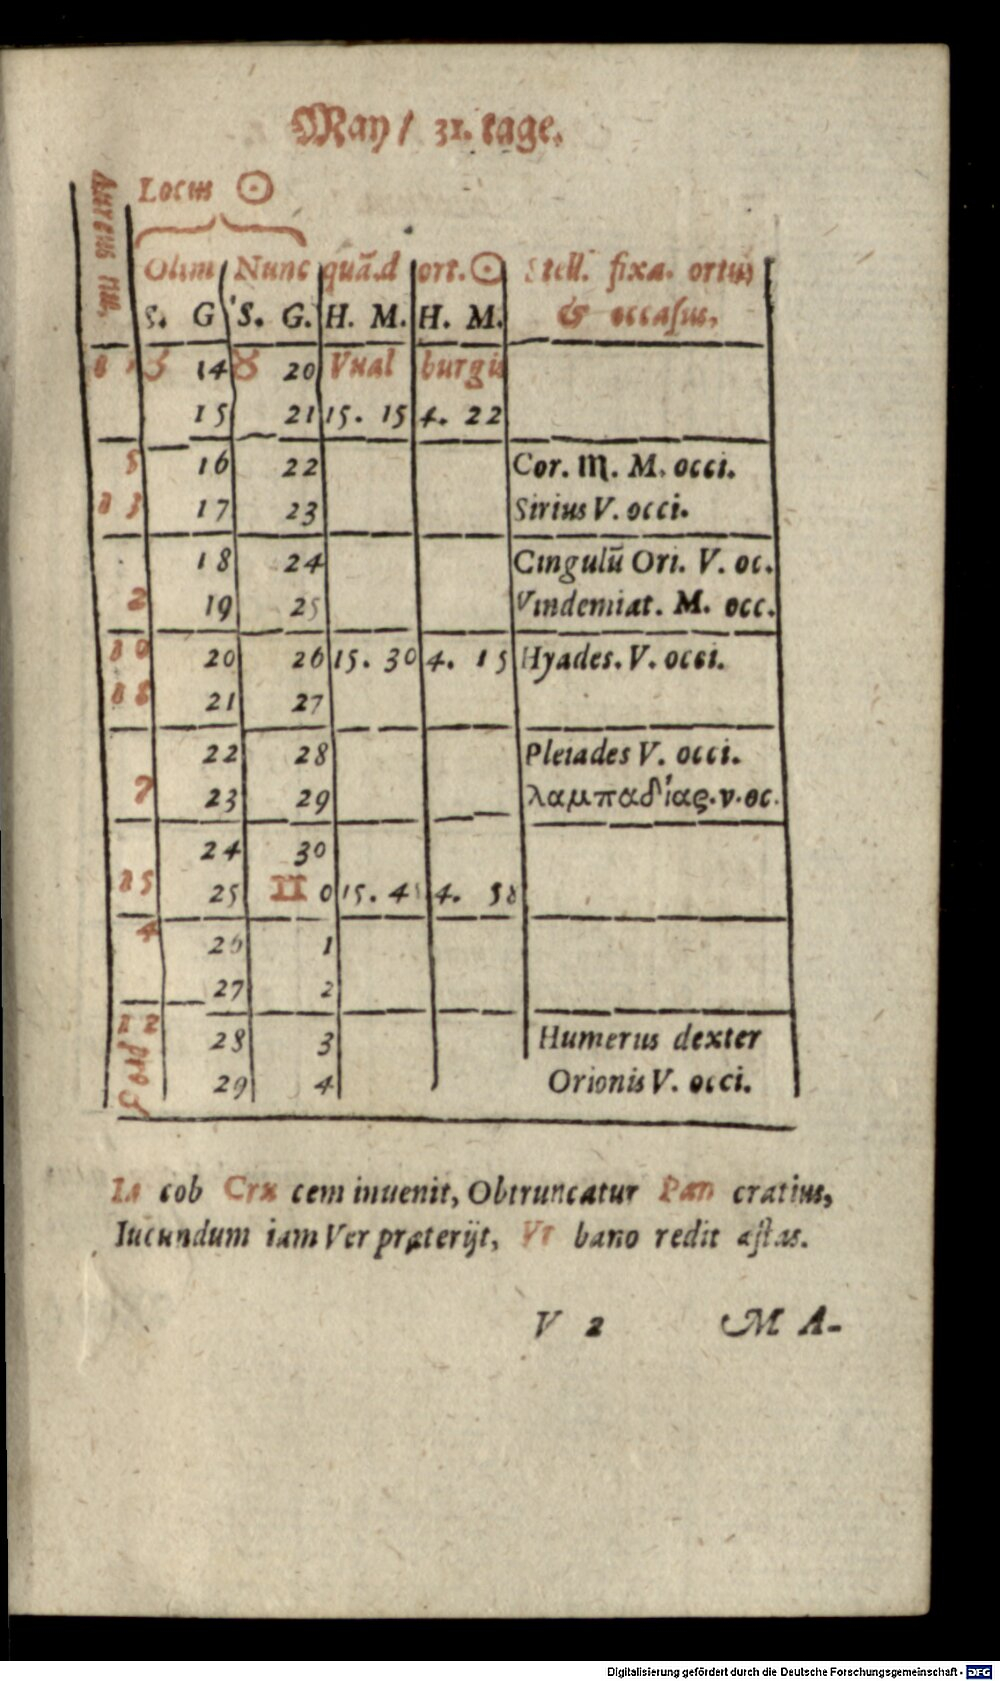 May / 31. tage.
Locus ☉
Aureus nu.
Olim Nunc quã.d ort. ☉ Stell. fixa. ortus
S. G S. G. H. M. H. M. & occasus,
♉ 14 ♉ 20 Vual burgis
15 21 15. 15 4. 22
5 16 22 Cor. ♏. M. occi.
13 17 23 Sirius V. occi.
18 24 Cingulũ Ori. V. oc.
2 19 25 Vindemiat. M. occ.
10 20 26 15. 30 4. 15 Hyades. V. occi.
18 21 27
22 28 Pleiades V. occi.
7 23 29 λαμπαδίας. v. oc.
24 30
15 25 ♊ 0 15. 4. 58
4 26 1
27 2
12 28 3 Humerus dexter
29 4 Orionis V. occi.
Ia cob Cru cem inuenit, Obtruncatur Pan cratius,
Iucundum iam Ver præterijt, Vr bano redit æstas.
V 2 M A-
Digitalisierung gefördert durch die Deutsche Forschungsgemeinschaft - DFG